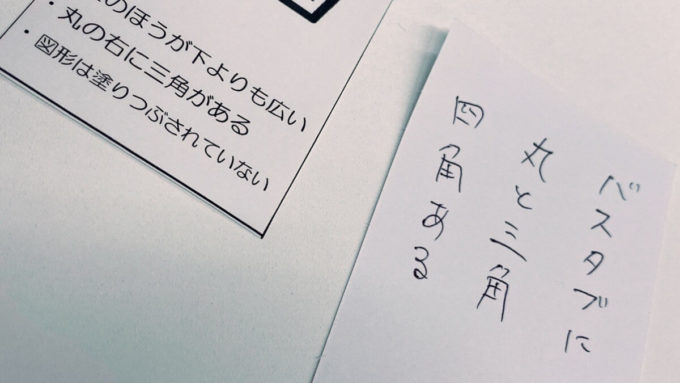 のほうが下よりも広い
・丸の右に三角がある
・図形は塗りつぶされていない
バスタブに
丸と三角
四角ある